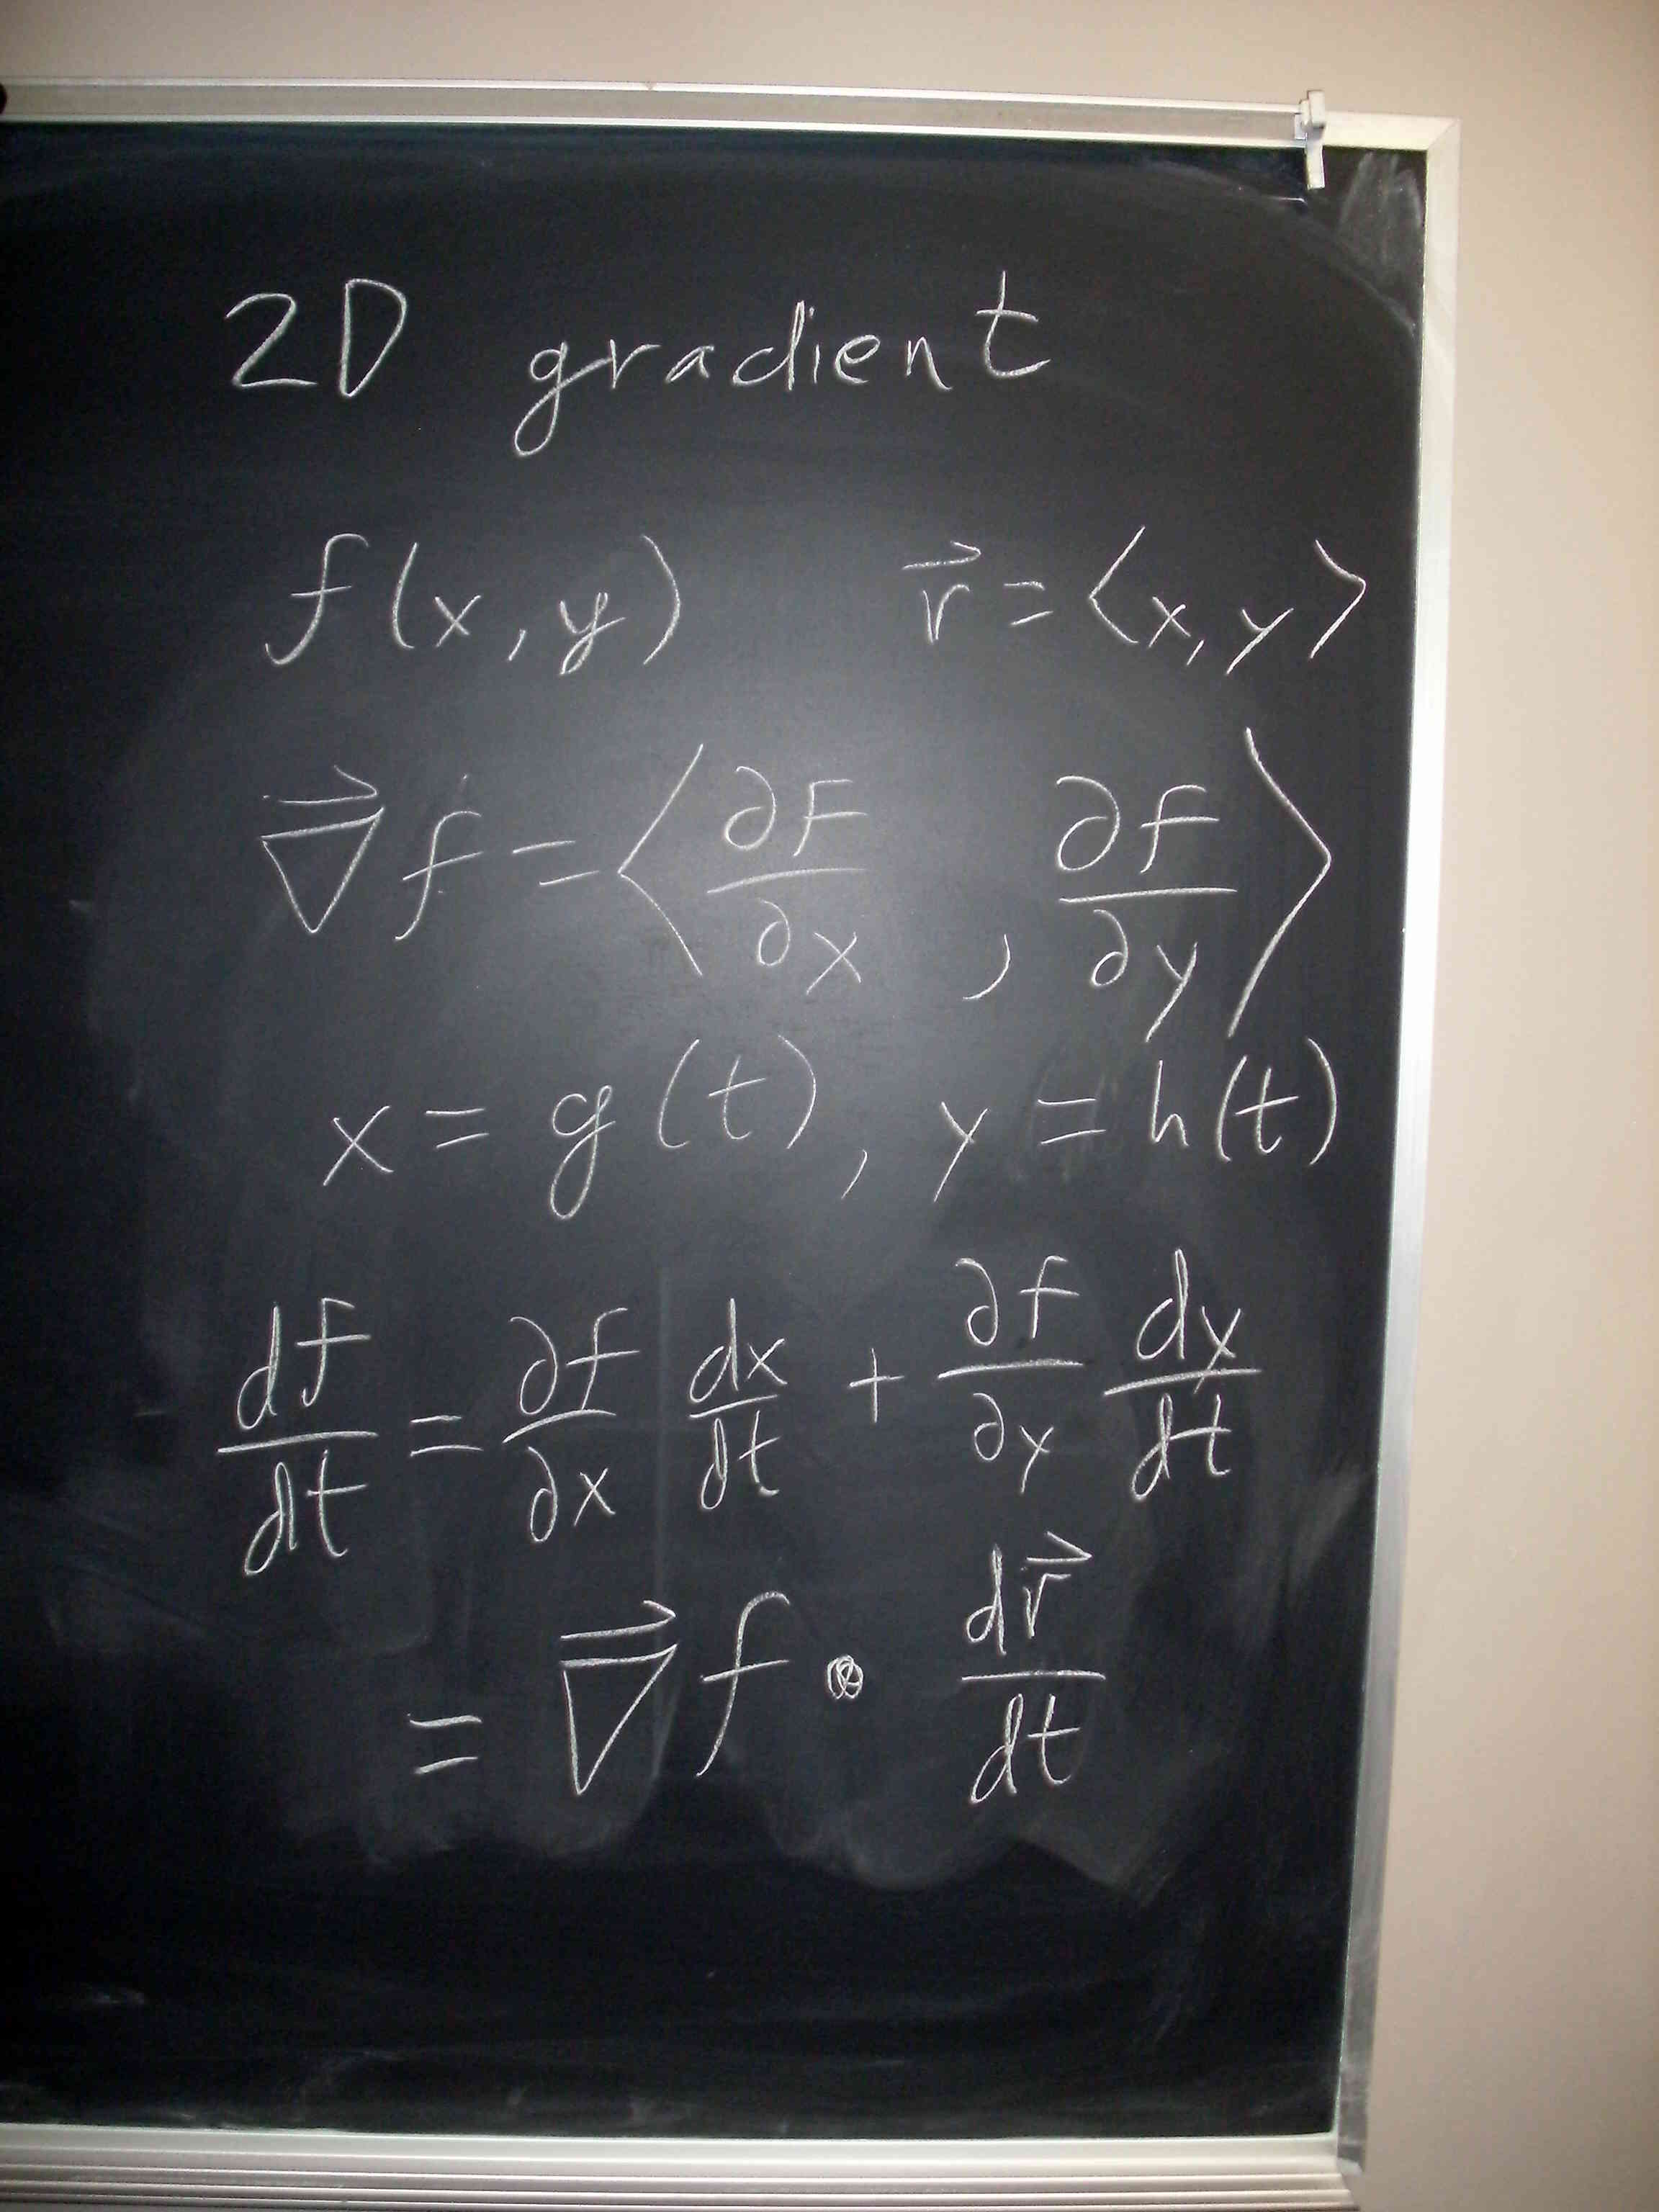 2D gradient
f(x,y) r⃗ = ⟨x,y⟩
∇⃗f = ⟨∂f/∂x , ∂f/∂y⟩
x = g(t), y = h(t)
df/dt = ∂f/∂x dx/dt + ∂f/∂y dy/dt
= ∇⃗f • dr⃗/dt